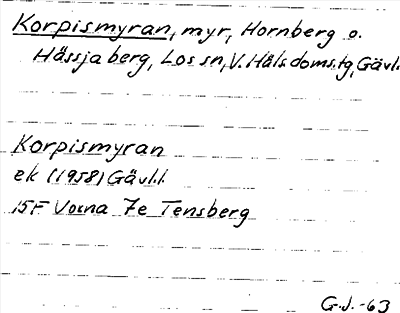 Korpismyran, myr, Hornberg o.
Hässjaberg, Los sn, V. Häls. doms.tg, Gävl.
Korpismyran
ek (1958) Gävl.l.
15F Voxna 7e Tensberg
G.J. -63